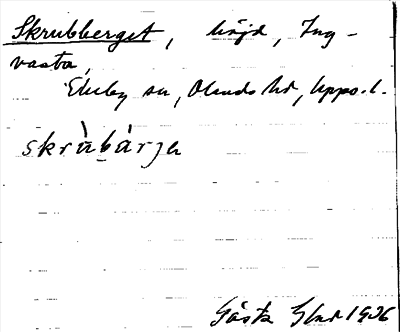 Skrubberget, höjd, Ing-
vasta,
Ekeby sn, Olands hd, Upps. l.
skrùbárjə
Gösta 1936